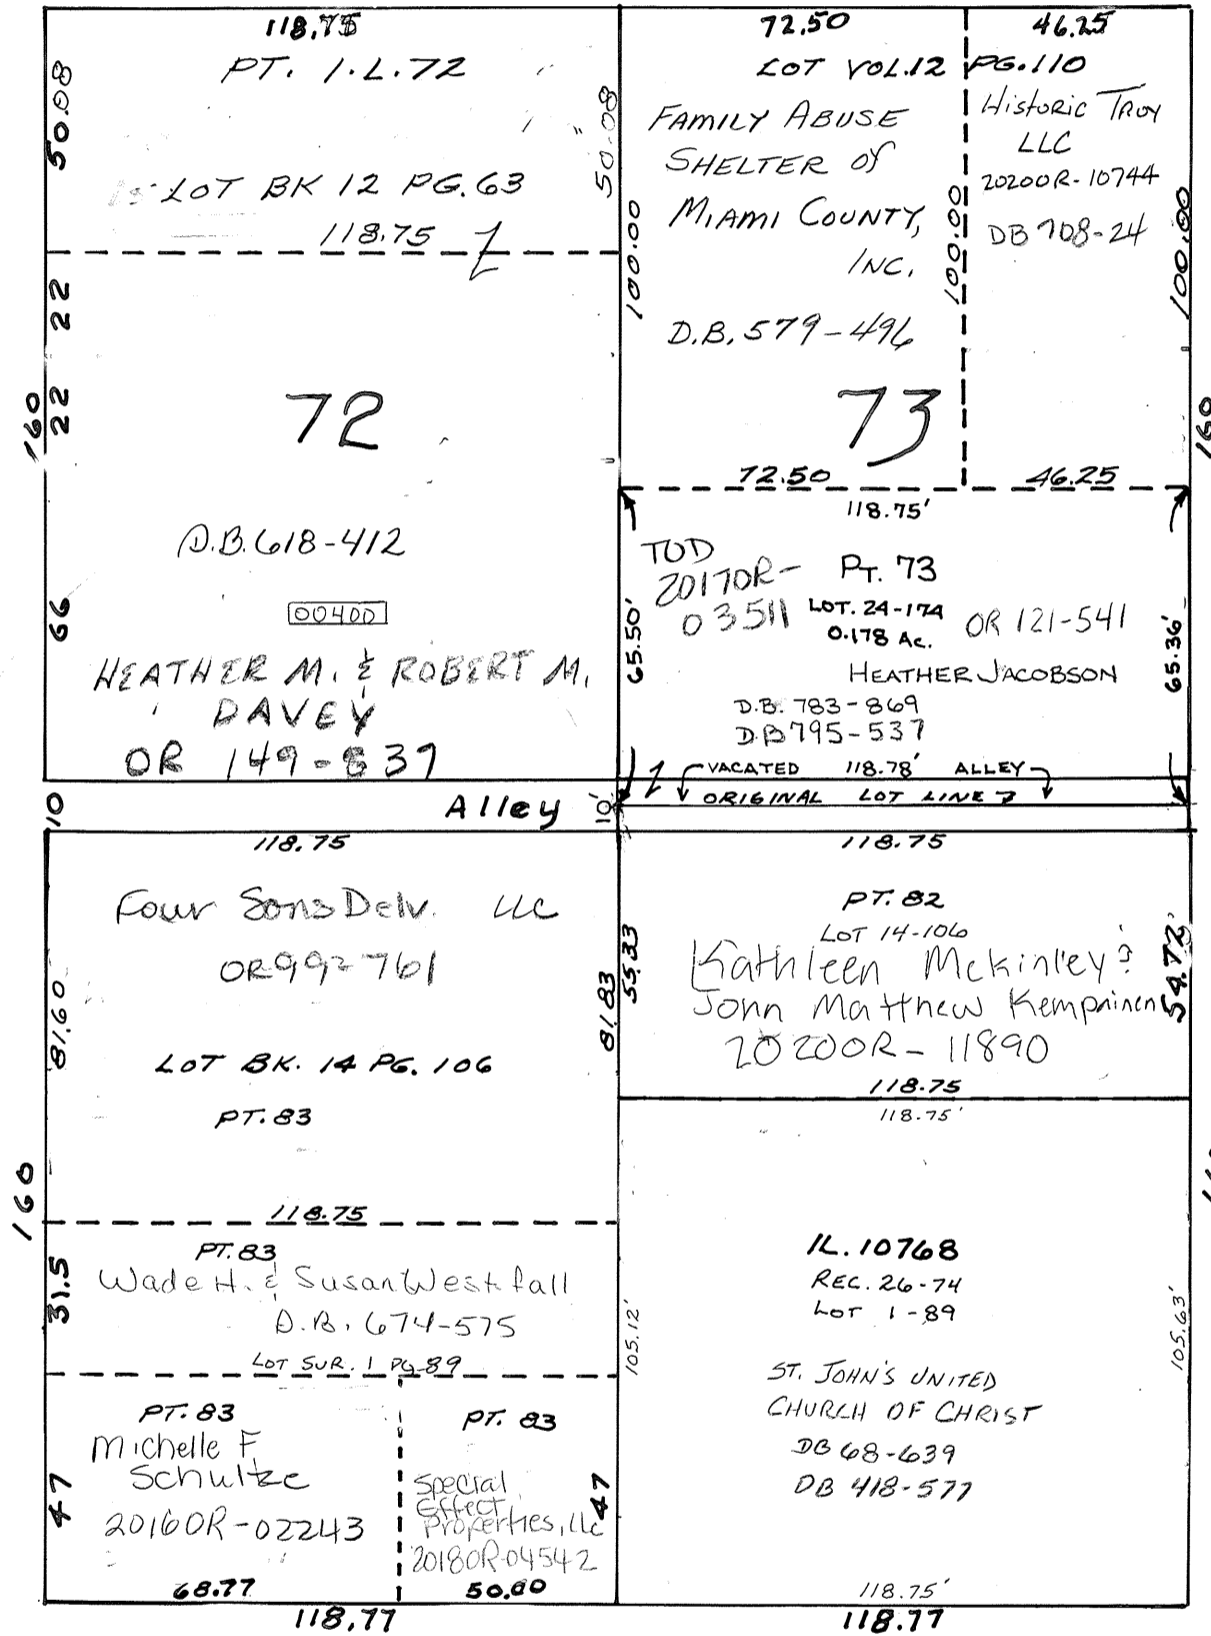 118.75
PT. I.L.72
50.08
50.08
LOT BK 12 PG.63
118.75
22
22
160
72
D.B.618-412
66
00400
HEATHER M. & ROBERT M.
DAVEY
OR 149-837
72.50
46.25
LOT VOL.12 PG.110
FAMILY ABUSE
SHELTER OF
MIAMI COUNTY,
INC.
D.B.579-496
100.00
100.00
Historic Troy
LLC
2020OR-10744
DB 708-24
100.00
73
160
72.50
46.25
118.75'
TOD
2017OR-
03511
PT. 73
LOT. 24-174
0.178 AC.
OR 121-541
HEATHER JACOBSON
D.B. 783-869
DB795-537
65.50'
65.36'
VACATED 118.78' ALLEY
ORIGINAL LOT LINE
10
Alley
10'
118.75
Four Sons Delv. LLC
OR992-761
81.60
81.83
LOT BK. 14 PG. 106
PT.83
160
118.75
PT.83
31.5
Wade H. & Susan Westfall
D.B. 674-575
LOT SUR. 1 PG-89
PT.83
Michelle F
Schultze
2016OR-02243
47
68.77
PT. 83
Special
Effect
Properties, llc
2018OR-04542
47
50.00
118.77
118.75
PT.82
LOT 14-106
Kathleen McKinley &
John Matthew Kempainen
2020OR-11890
55.33
54.72'
118.75
118.75'
IL.10768
REC. 26-74
LOT 1-89
105.12'
105.63'
ST. JOHN'S UNITED
CHURCH OF CHRIST
DB 68-639
DB 418-577
118.75'
118.77